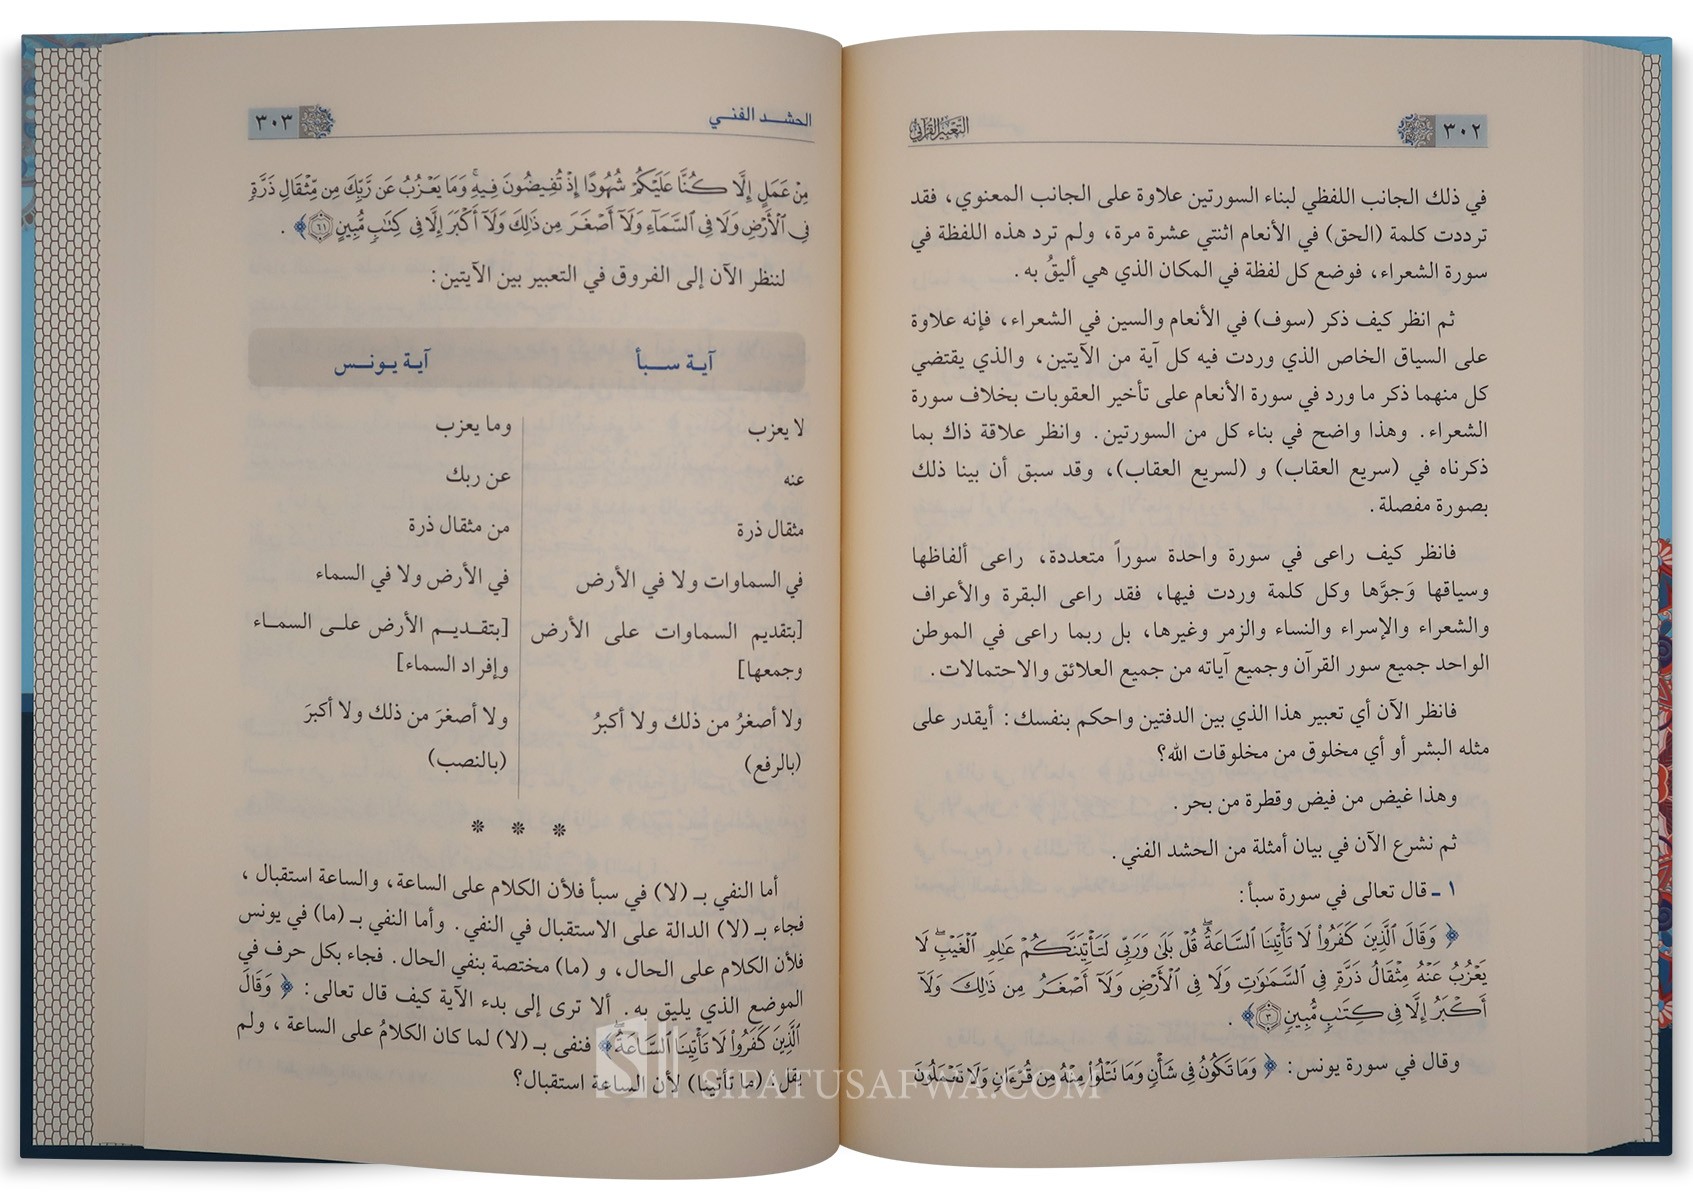 ٣٠٢
التعبير القرآني
في ذلك الجانب اللفظي لبناء السورتين علاوة على الجانب المعنوي، فقد
ترددت كلمة (الحق) في الأنعام اثنتي عشرة مرة، ولم ترد هذه اللفظة في
سورة الشعراء، فوضع كل لفظة في المكان الذي هي أليقُ به.
ثم انظر كيف ذكر (سوف) في الأنعام والسين في الشعراء، فإنه علاوة
على السياق الخاص الذي وردت فيه كل آية من الآيتين، والذي يقتضي
كل منهما ذكر ما ورد في سورة الأنعام على تأخير العقوبات بخلاف سورة
الشعراء. وهذا واضح في بناء كل من السورتين. وانظر علاقة ذاك بما
ذكرناه في (سريع العقاب) و (لسريع العقاب)، وقد سبق أن بينا ذلك
بصورة مفصلة.
فانظر كيف راعى في سورة واحدة سوراً متعددة، راعى ألفاظها
وسياقها وَجوَّها وكل كلمة وردت فيها، فقد راعى البقرة والأعراف
والشعراء والإسراء والنساء والزمر وغيرها، بل ربما راعى في الموطن
الواحد جميع سور القرآن وجميع آياته من جميع العلائق والاحتمالات.
فانظر الآن أي تعبير هذا الذي بين الدفتين واحكم بنفسك: أيقدر على
مثله البشر أو أي مخلوق من مخلوقات الله؟
وهذا غيض من فيض وقطرة من بحر.
ثم نشرع الآن في بيان أمثلة من الحشد الفني.
١ ـ قال تعالى في سورة سبأ:
﴿ وَقَالَ ٱلَّذِينَ كَفَرُوا۟ لَا تَأْتِينَا ٱلسَّاعَةُ ۖ قُلْ بَلَىٰ وَرَبِّى لَتَأْتِيَنَّكُمْ عَـٰلِمِ ٱلْغَيْبِ ۖ لَا
يَعْزُبُ عَنْهُ مِثْقَالُ ذَرَّةٍ فِى ٱلسَّمَـٰوَٰتِ وَلَا فِى ٱلْأَرْضِ وَلَآ أَصْغَرُ مِن ذَٰلِكَ وَلَآ
أَكْبَرُ إِلَّا فِى كِتَـٰبٍ مُّبِينٍ ٣ ﴾.
وقال في سورة يونس: ﴿ وَمَا تَكُونُ فِى شَأْنٍ وَمَا تَتْلُوا۟ مِنْهُ مِن قُرْءَانٍ وَلَا تَعْمَلُونَ
الحشد الفني
٣٠٣
مِنْ عَمَلٍ إِلَّا كُنَّا عَلَيْكُمْ شُهُودًا إِذْ تُفِيضُونَ فِيهِ ۚ وَمَا يَعْزُبُ عَن رَّبِّكَ مِن مِّثْقَالِ ذَرَّةٍ
فِى ٱلْأَرْضِ وَلَا فِى ٱلسَّمَآءِ وَلَآ أَصْغَرَ مِن ذَٰلِكَ وَلَآ أَكْبَرَ إِلَّا فِى كِتَـٰبٍ مُّبِينٍ ٦١ ﴾.
لننظر الآن إلى الفروق في التعبير بين الآيتين:
آية سبأ آية يونس
لا يعزب وما يعزب
عنه عن ربك
مثقال ذرة من مثقال ذرة
في السماوات ولا في الأرض في الأرض ولا في السماء
[بتقديم السماوات على الأرض [بتقديم الأرض على السماء
وجمعها] وإفراد السماء]
ولا أصغرُ من ذلك ولا أكبرُ ولا أصغرَ من ذلك ولا أكبرَ
(بالرفع) (بالنصب)
* * *
أما النفي بـ (لا) في سبأ فلأن الكلام على الساعة، والساعة استقبال،
فجاء بـ (لا) الدالة على الاستقبال في النفي. وأما النفي بـ (ما) في يونس
فلأن الكلام على الحال، و (ما) مختصة بنفي الحال. فجاء بكل حرف في
الموضع الذي يليق به. ألا ترى إلى بدء الآية كيف قال تعالى: ﴿ وَقَالَ
ٱلَّذِينَ كَفَرُوا۟ لَا تَأْتِينَا ٱلسَّاعَةُ ۖ ﴾ فنفى بـ (لا) لما كان الكلامُ على الساعة، ولم
يقل: (ما تأتينا) لأن الساعة استقبال؟
SIFATUSAFWA.COM